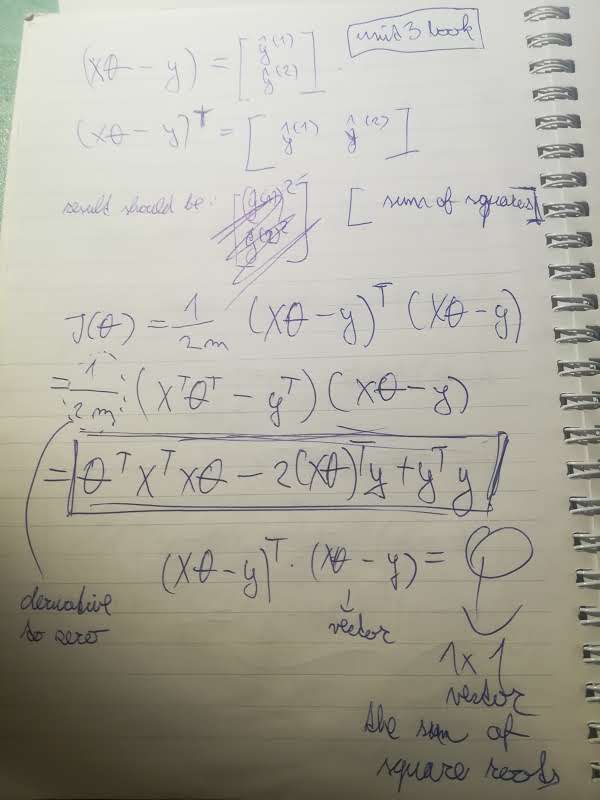 unit 3 book
(Xθ − y) = [ ŷ⁽¹⁾
ŷ⁽²⁾ ]
(Xθ − y)ᵀ = [ ŷ⁽¹⁾ ŷ⁽²⁾ ]
result should be: [ sum of squares ]
J(θ) = 1/2m (Xθ − y)ᵀ (Xθ − y)
= 1/2m (Xᵀθᵀ − yᵀ) (Xθ − y)
= θᵀXᵀXθ − 2(Xθ)ᵀy + yᵀy
(Xθ − y)ᵀ · (Xθ − y) =
derivative
to zero
vector
1x1
vector
the sum of
square roots